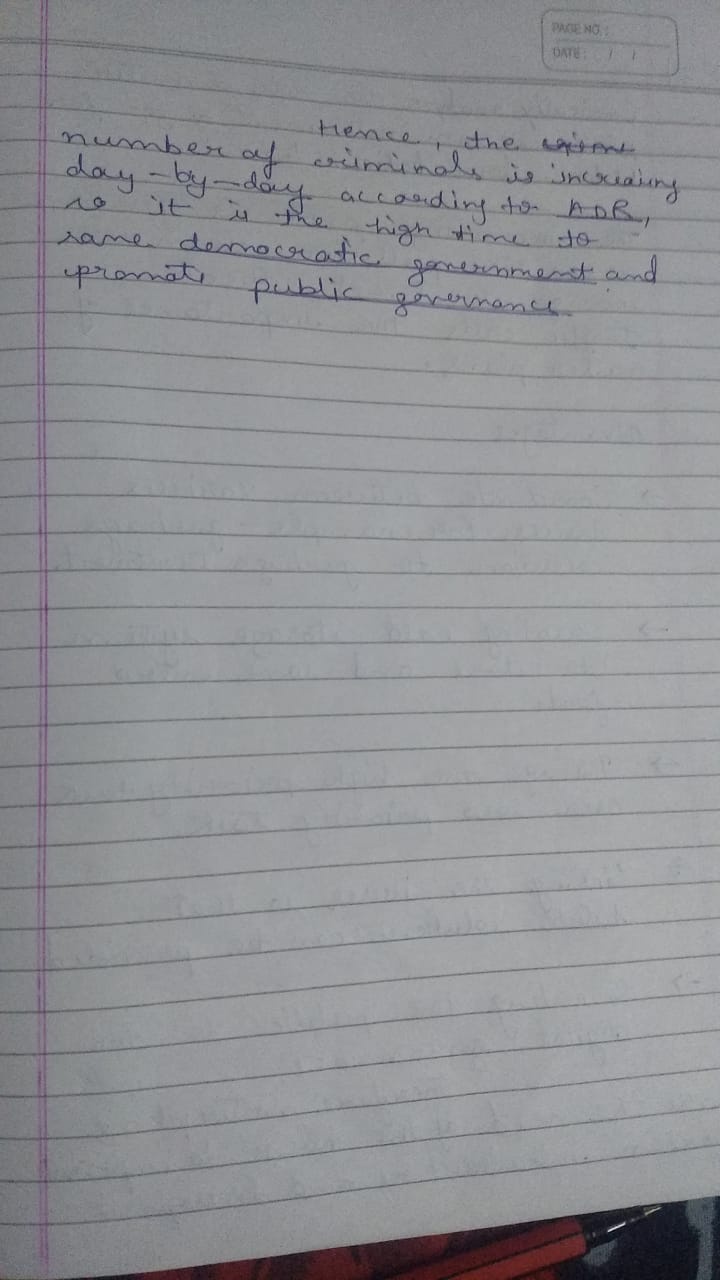 PAGE NO.:
DATE: / /
Hence, the
number of criminals is increasing
day-by-day according to ADR,
so it is the high time to
same democratic government and
promote public governance